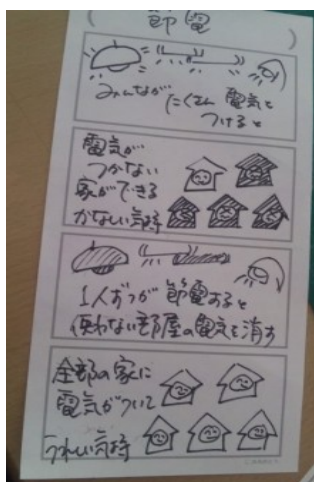 (節電)
みんなが たくさん 電気を
つけると
電気が
つかない
家ができる
かなしい気持
1人ずつが 節電すると
使わない部屋の電気を消す
全部の家に
電気がついて
うれしい気持